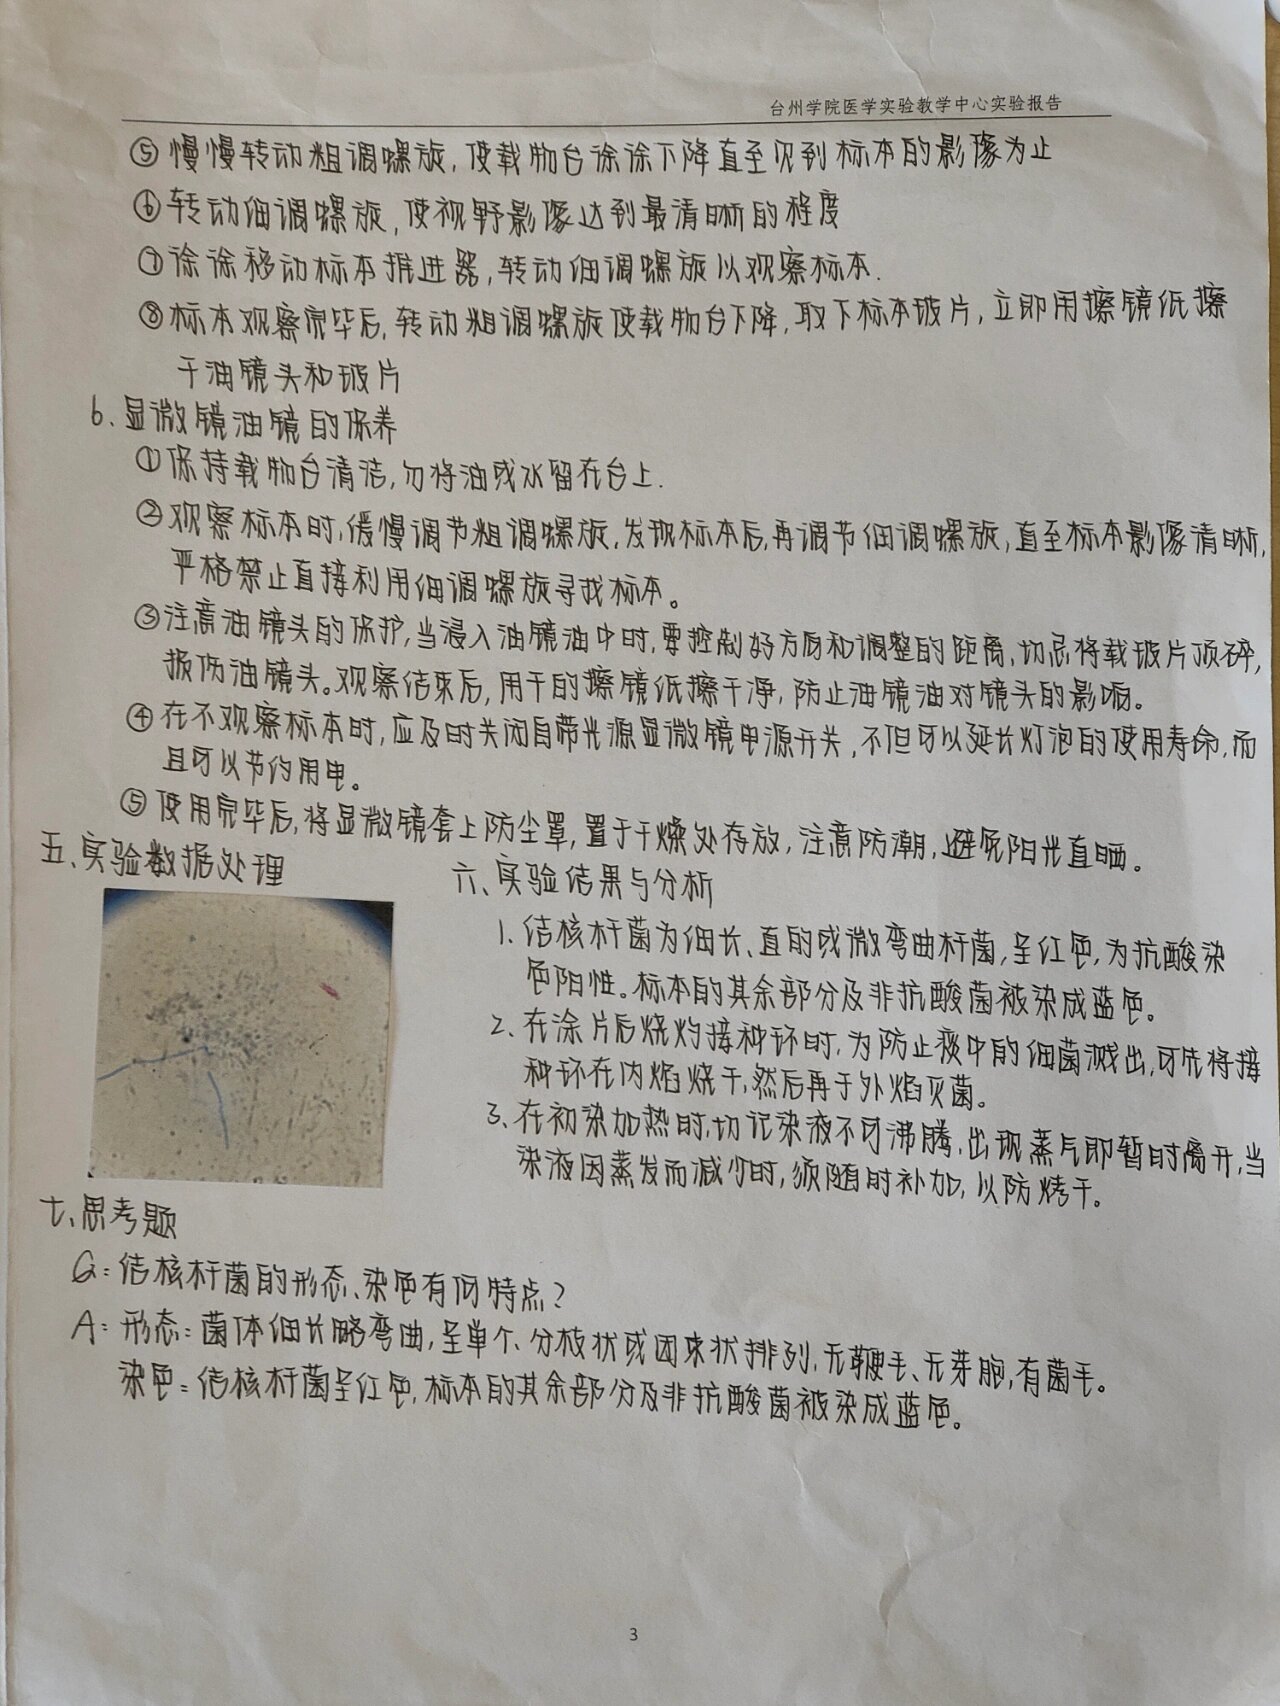 台州学院医学实验教学中心实验报告
⑤慢慢转动粗调螺旋,使载物台徐徐下降直至见到标本的影像为止
⑥转动细调螺旋,使视野影像达到最清晰的程度
⑦徐徐移动标本推进器,转动细调螺旋以观察标本.
⑧标本观察完毕后,转动粗调螺旋使载物台下降,取下标本玻片,立即用擦镜纸擦
干油镜头和玻片
6、显微镜油镜的保养
①保持载物台清洁,勿将油或水留在台上.
②观察标本时,缓慢调节粗调螺旋,发现标本后,再调节细调螺旋,直至标本影像清晰,
严格禁止直接利用细调螺旋寻找标本。
③注意油镜头的保护,当浸入油镜油中时,要控制好方向和调整的距离,切忌将载玻片顶碎,
损伤油镜头。观察结束后,用干的擦镜纸擦干净,防止油镜油对镜头的影响。
④在不观察标本时,应及时关闭自带光源显微镜电源开关,不但可以延长灯泡的使用寿命,而
且可以节约用电。
⑤使用完毕后,将显微镜套上防尘罩,置于干燥处存放,注意防潮,避免阳光直晒。
五、实验数据处理
六、实验结果与分析
1、结核杆菌为细长、直的或微弯曲杆菌,呈红色,为抗酸染
色阳性。标本的其余部分及非抗酸菌被染成蓝色。
2、在涂片后烧灼接种环时,为防止痰中的细菌溅出,可先将接
种环在内焰烧干,然后再于外焰灭菌。
3、在初染加热时,切记染液不可沸腾,出现蒸气即暂时离开,当
染液因蒸发而减少时,须随时补加,以防烤干。
七、思考题
Q:结核杆菌的形态、染色有何特点?
A:形态:菌体细长略弯曲,呈单个、分枝状或团束状排列,无鞭毛、无芽胞,有菌毛。
染色:结核杆菌呈红色,标本的其余部分及非抗酸菌被染成蓝色。
3